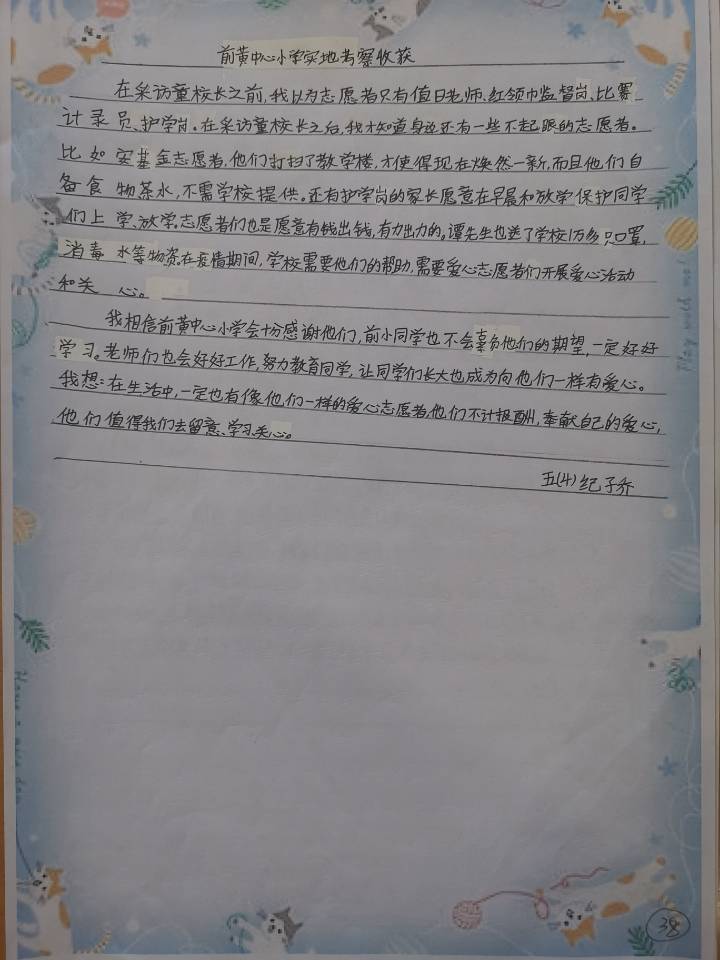 前黄中心小学实地考察收获
在采访童校长之前,我以为志愿者只有值日老师、红领巾监督岗、比赛
计录员、护学岗。在采访童校长之后,我才知道身边还有一些不起眼的志愿者。
比如安基金志愿者,他们打扫了教学楼,才使得现在焕然一新,而且他们自
备食物茶水,不需学校提供。还有护学岗的家长愿意在早晨和放学保护同学
们上学、放学。志愿者们也是愿意有钱出钱,有力出力的。谭先生也送了学校1万多只口罩,
消毒水等物资。在疫情期间,学校需要他们的帮助,需要爱心志愿者们开展爱心活动
和关心。
我相信前黄中心小学会十分感谢他们,前小同学也不会辜负他们的期望,一定好好
学习。老师们也会好好工作,努力教育同学,让同学们长大也成为向他们一样有爱心。
我想:在生活中,一定也有像他们一样的爱心志愿者,他们不计报酬,奉献自己的爱心,
他们值得我们去留意、学习、关心。
五(4) 纪子乔
38
Have a nice date
Play with me!